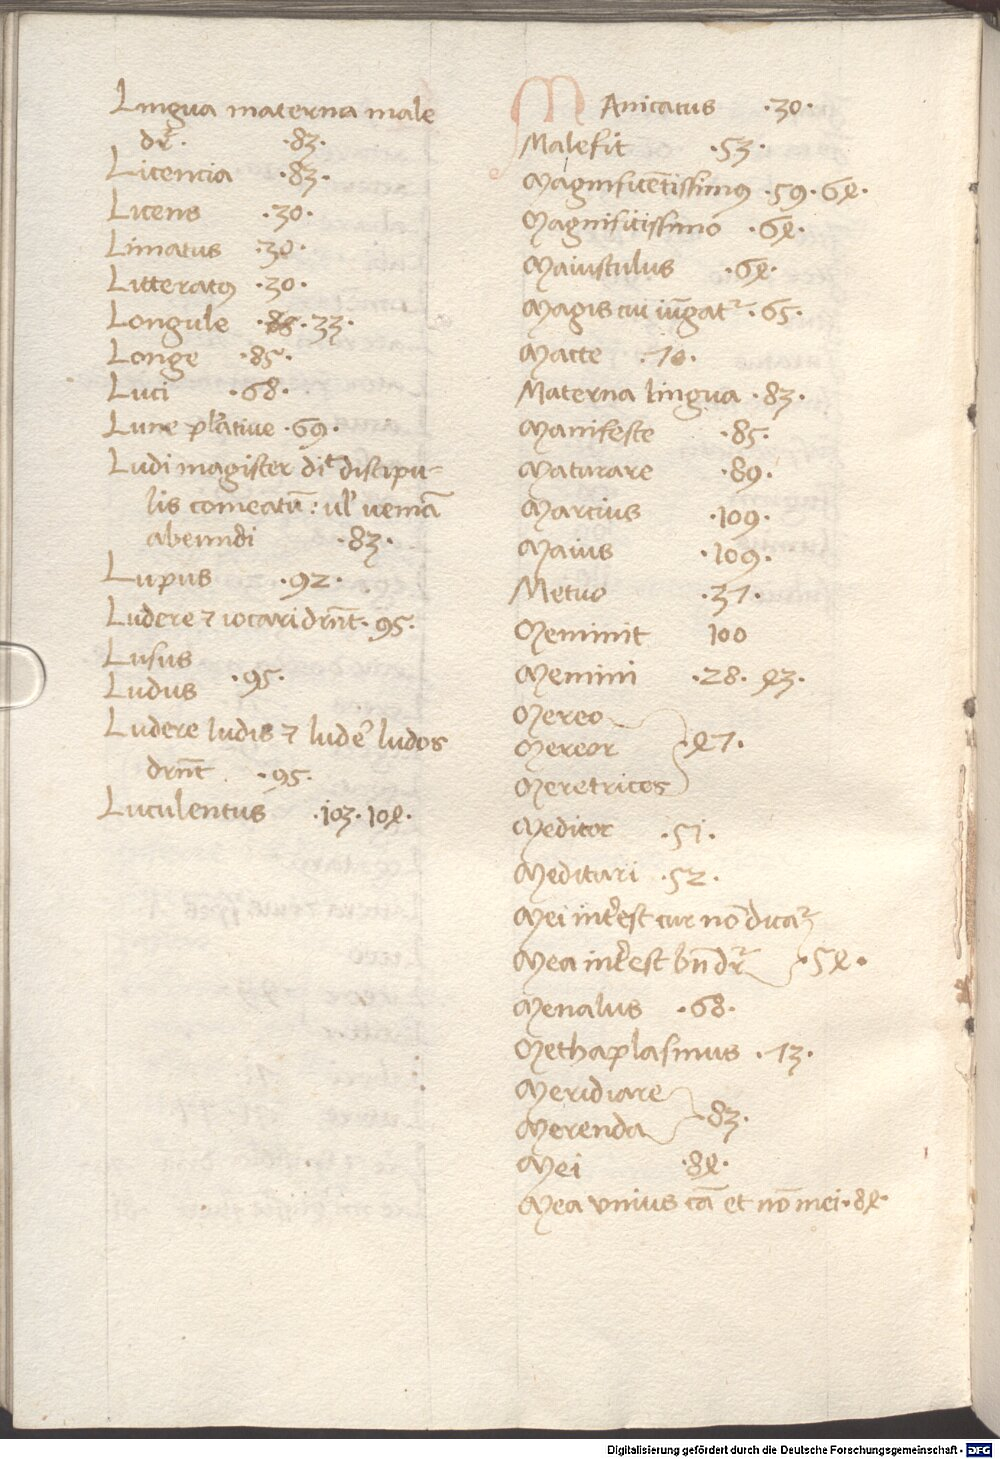 Lingua materna male
dr̄. ·83·
Licencia ·83·
Licens ·30·
Limatus ·30·
Litteratꝰ ·30·
Longule ·33·
Longe ·85·
Luci ·68·
Lune pl̄atiue ·69·
Ludi magister dit̄ discipu=
lis comeatū: ul' ueniā
abeundi ·83·
Lupus ·92·
Ludere ⁊ iocari drn̄t· 95·
Lusus
Ludus ·95·
Ludere ludis ⁊ ludē ludos
drn̄t ·95·
Luculentus ·103·104·
MAnicatus ·30·
Malefit ·53·
Magnificētissimꝰ ·59·64·
Magnificissimo ·64·
Maiusculus ·64·
Magis cui iūgat᷑ ·65·
Macte ·70·
Materna lingua ·83·
Manifeste ·85·
Maturare ·89·
Marcius ·109·
Maius ·109·
Metuo ·37·
Meminit 100
Memini ·28· 43·
Mereo
Mereor ·47·
Meretricos
Meditor ·51·
Meditari ·52·
Mei int̄est cur nō dica᷑
Mea int̄est bn̄ dr᷑ ·54·
Menalus ·68·
Methaplasmus ·73·
Meridiare
Merenda ·83·
Mei ·84·
Mea unius cā et nō mei·84·
Digitalisierung gefördert durch die Deutsche Forschungsgemeinschaft - DFG